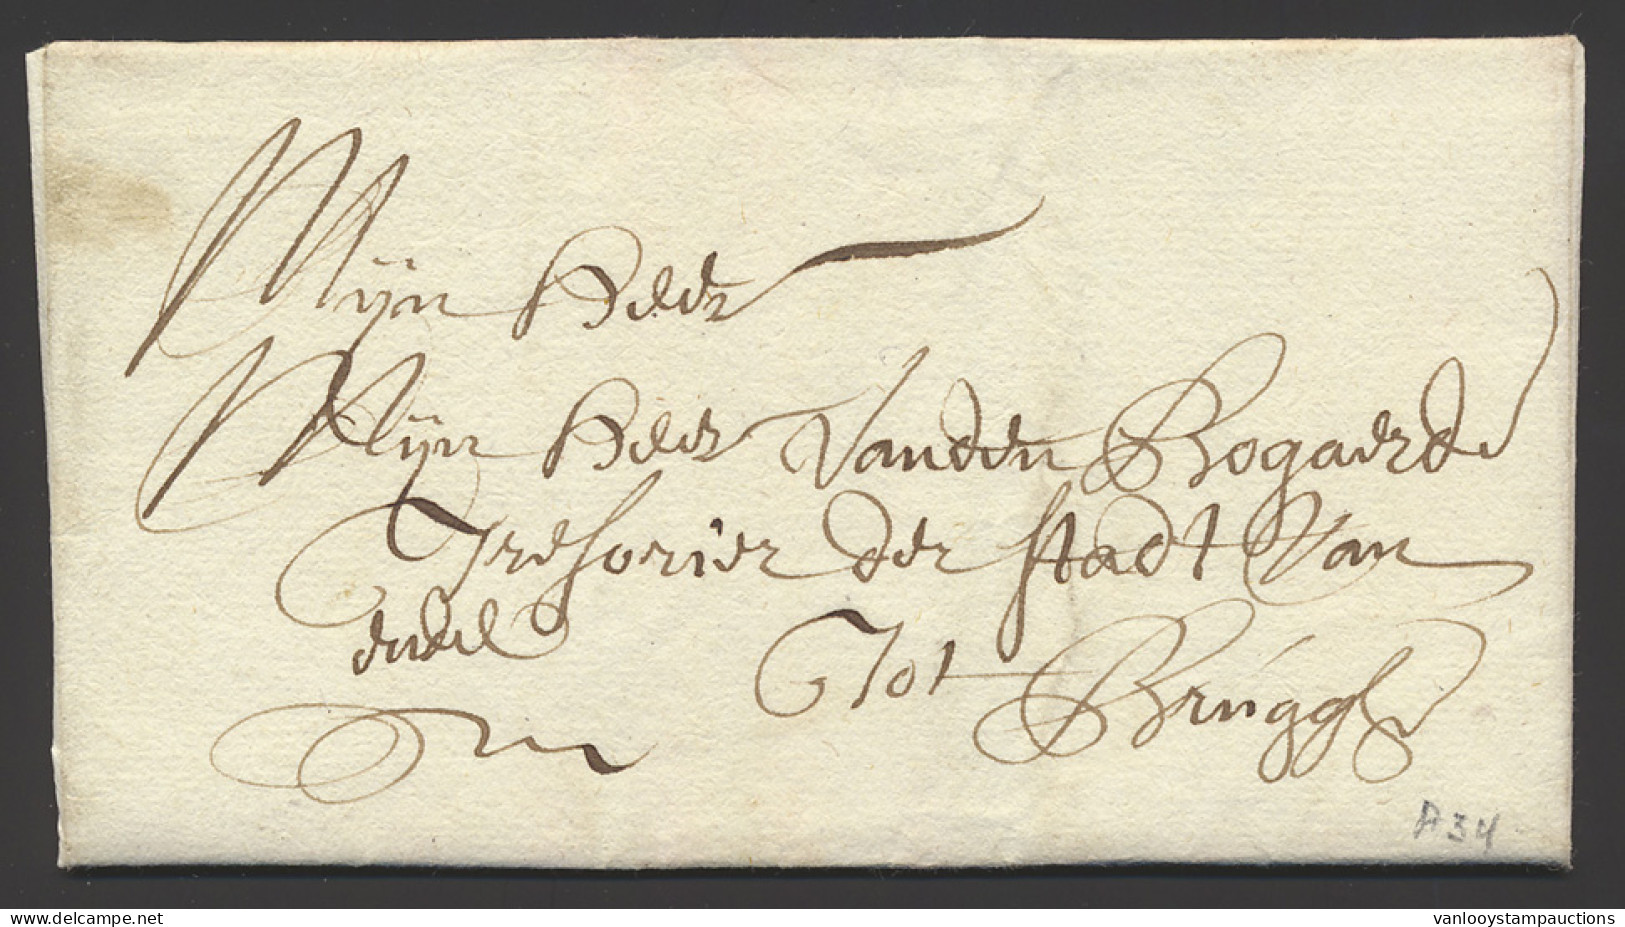 Mijn Heer
Mijn Heer Vanden Bogaerde
Tresorier der stadt Van
Tot Brugghe
A34
www.delcampe.net
vanlooystampauctions